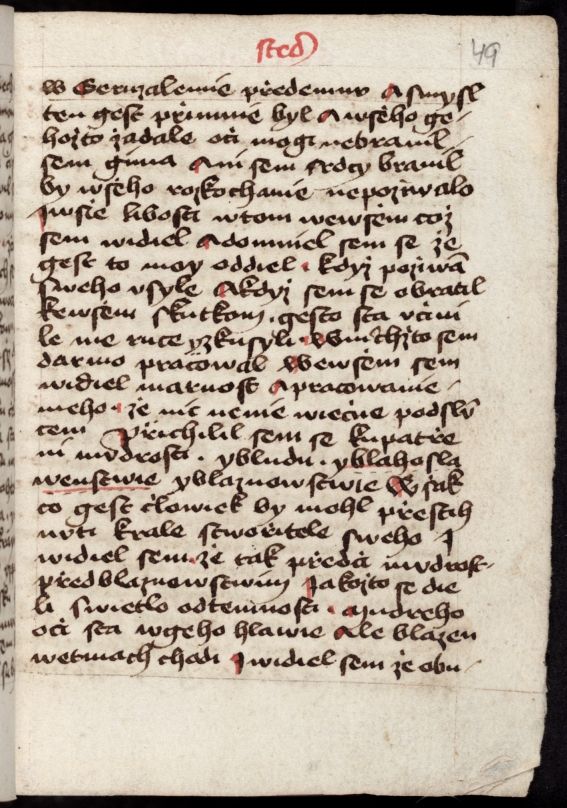 49
w Geruzalemie předemnu A smysl
ten gest přimnie byl A wšeho ge-
hožto žadale oči mogi nebranil
sem gima Ani sem srdcy branil
by wšeho rozkochanie nepožiwalo
Iwsie libosti wtom wewšem což
sem widiel Adomniel sem se že
gest to moy oddiel . kdyż pożiwā
sweho vsyle Akdyż sem se obratil
kewšem skutkom . gesto sta včini
le mie ruce yzkusyli . Wnichżto sem
darmo pracowal Wewšem sem
widiel marnost Apracowanie
meho . že nic nenie wiečne podslū
cem Přichilil sem se kupatře
ni mudrosti . ybludu . yblahosla
wenstwie yblaznowstwie Wjak
co gest človiek by mohl přestih
nuti krale stwořitele sweho I
widiel sem . že tak předči mudrost
předblaznowstwim Jakożto se die
li swietlo odtemnosti . Mudreho
oči sta wgeho hlawie Ale blazen
wetmach chodi Iwidiel sem že obu-